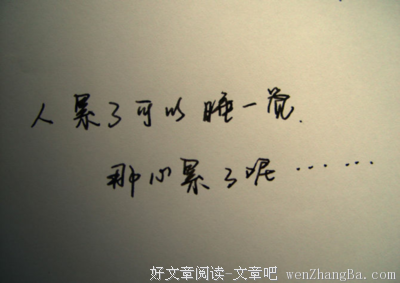 人累了可以睡一觉.
那心累了呢……
好文章阅读-文章吧 wenZhangBa.com